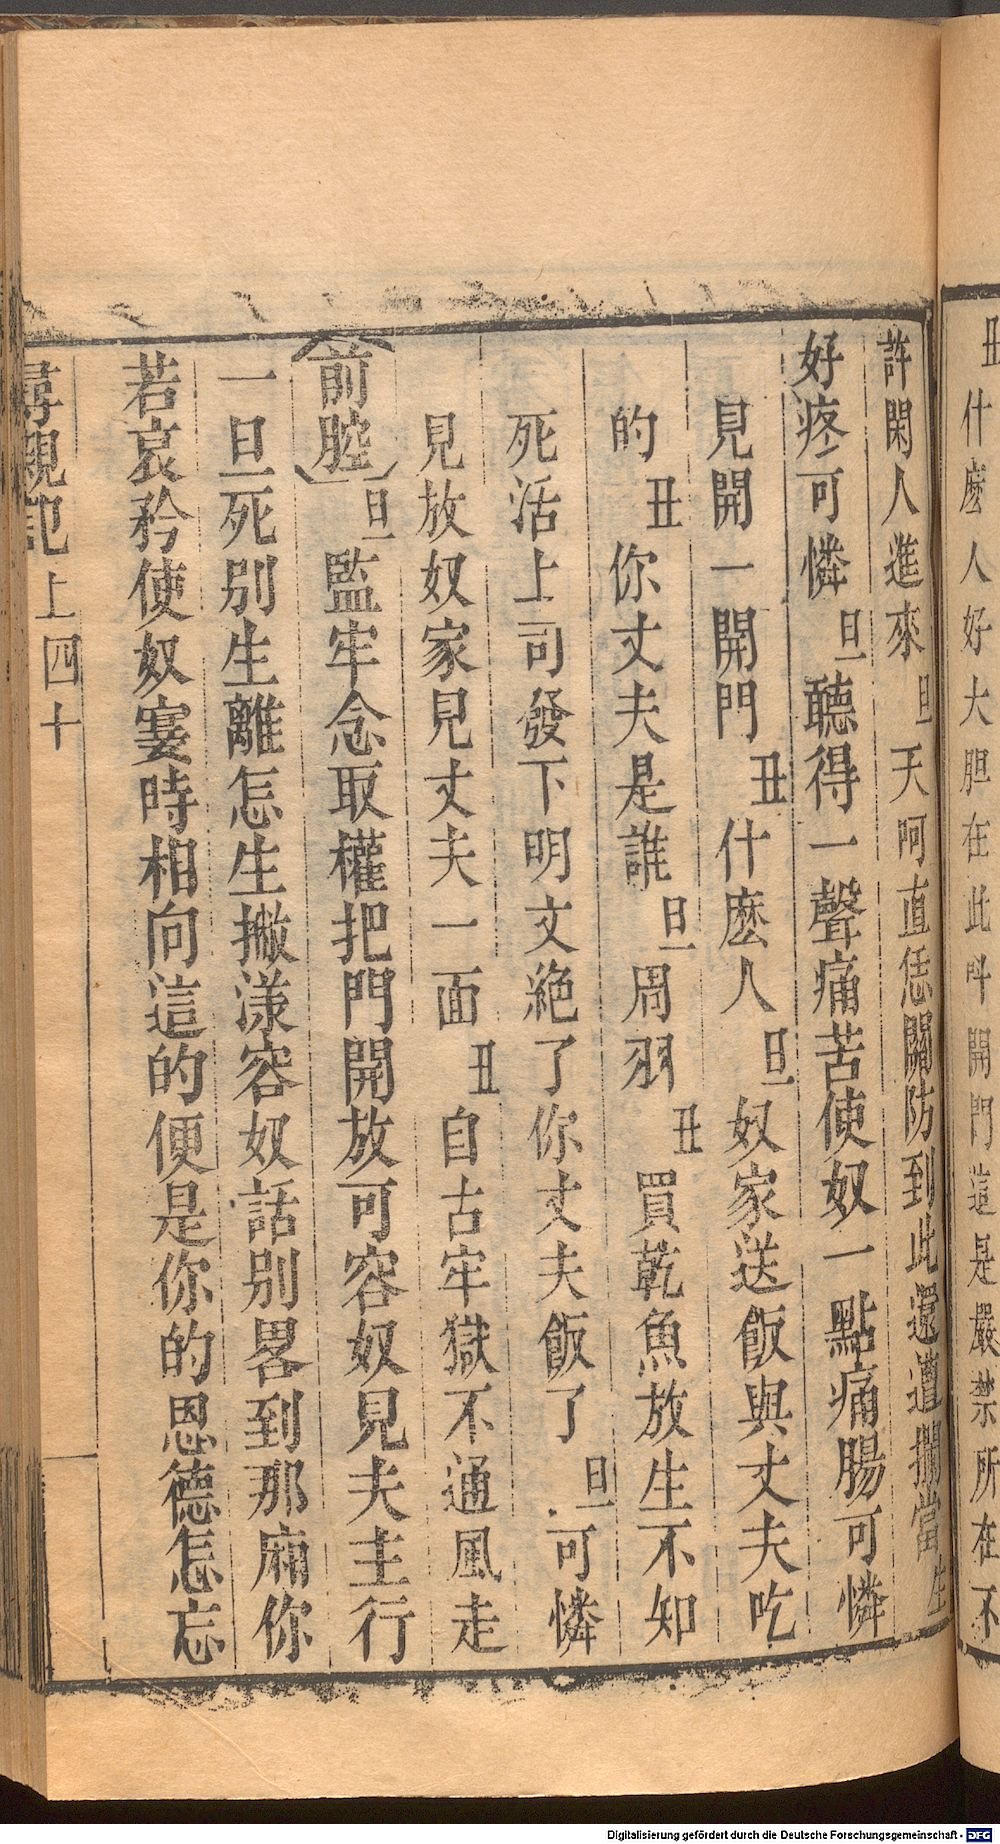 丑什麽人好大胆在此呌開門這是嚴禁所在不
許閑人進來旦天呵直恁關防到此還遭攔當生
好疼可憐旦聽得一聲痛苦使奴一點痛腸可憐
見開一開門丑什麽人旦奴家送飯與丈夫吃
的丑你丈夫是誰旦周羽丑買乾魚放生不知
死活上司發下明文絶了你丈夫飯了旦可憐
見放奴家見丈夫一面丑自古牢獄不通風走
〔前腔〕旦監牢念取權把門開放可容奴見夫主行
一旦死別生離怎生撇漾容奴話別畧到那廂你
若哀矜使奴霎時相向這的便是你的恩德怎忘
尋親記上四十
Digitalisierung gefördert durch die Deutsche Forschungsgemeinschaft - DFG